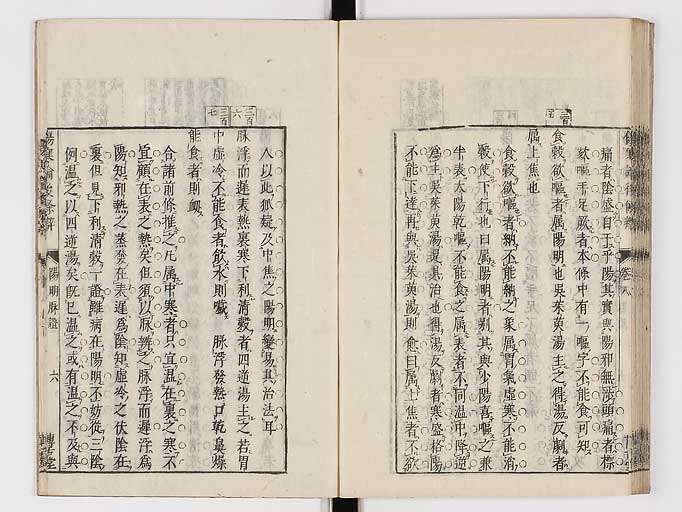 痛者陰盛自于乎陽其實與陽邪無涉頭痛者標
欬嘔手足厥者本條中有一嘔字不能食可知
三百
五
食穀欲嘔者屬陽明也吳茱萸湯主之得湯反劇者
屬上焦也
食穀欲嘔者納不能納之象屬胃氣虛寒不能消
穀使下行也曰屬陽明者別其與少陽喜嘔之兼
半表太陽乾嘔不能食之屬表者不同溫中降逆
為主吳茱萸湯是其治也得湯反劇者寒盛格陽
不能下達再與吳茱萸湯則愈曰屬上焦者不欲
人以此狐疑及中焦之陽明變易其治法耳
三百
六
脉浮而遲表熱裏寒下利清穀者四逆湯主之若胃
三百
七
中虛冷不能食者飲水則噦 脉浮發熱口乾鼻燥
能食者則衄
合諸前條推之凡属中寒者只宜溫在裏之寒不
宜顧在表之熱矣但須以脉辨之脉浮而遲浮為
陽知邪熱之蒸發在表遲為陰知虛冷之伏陰在
裏但見下利清穀一證雖病在陽明不妨從三陰
例溫之以四逆湯矣既已溫之或有溫之不及與
陽明脉證
六
卷八